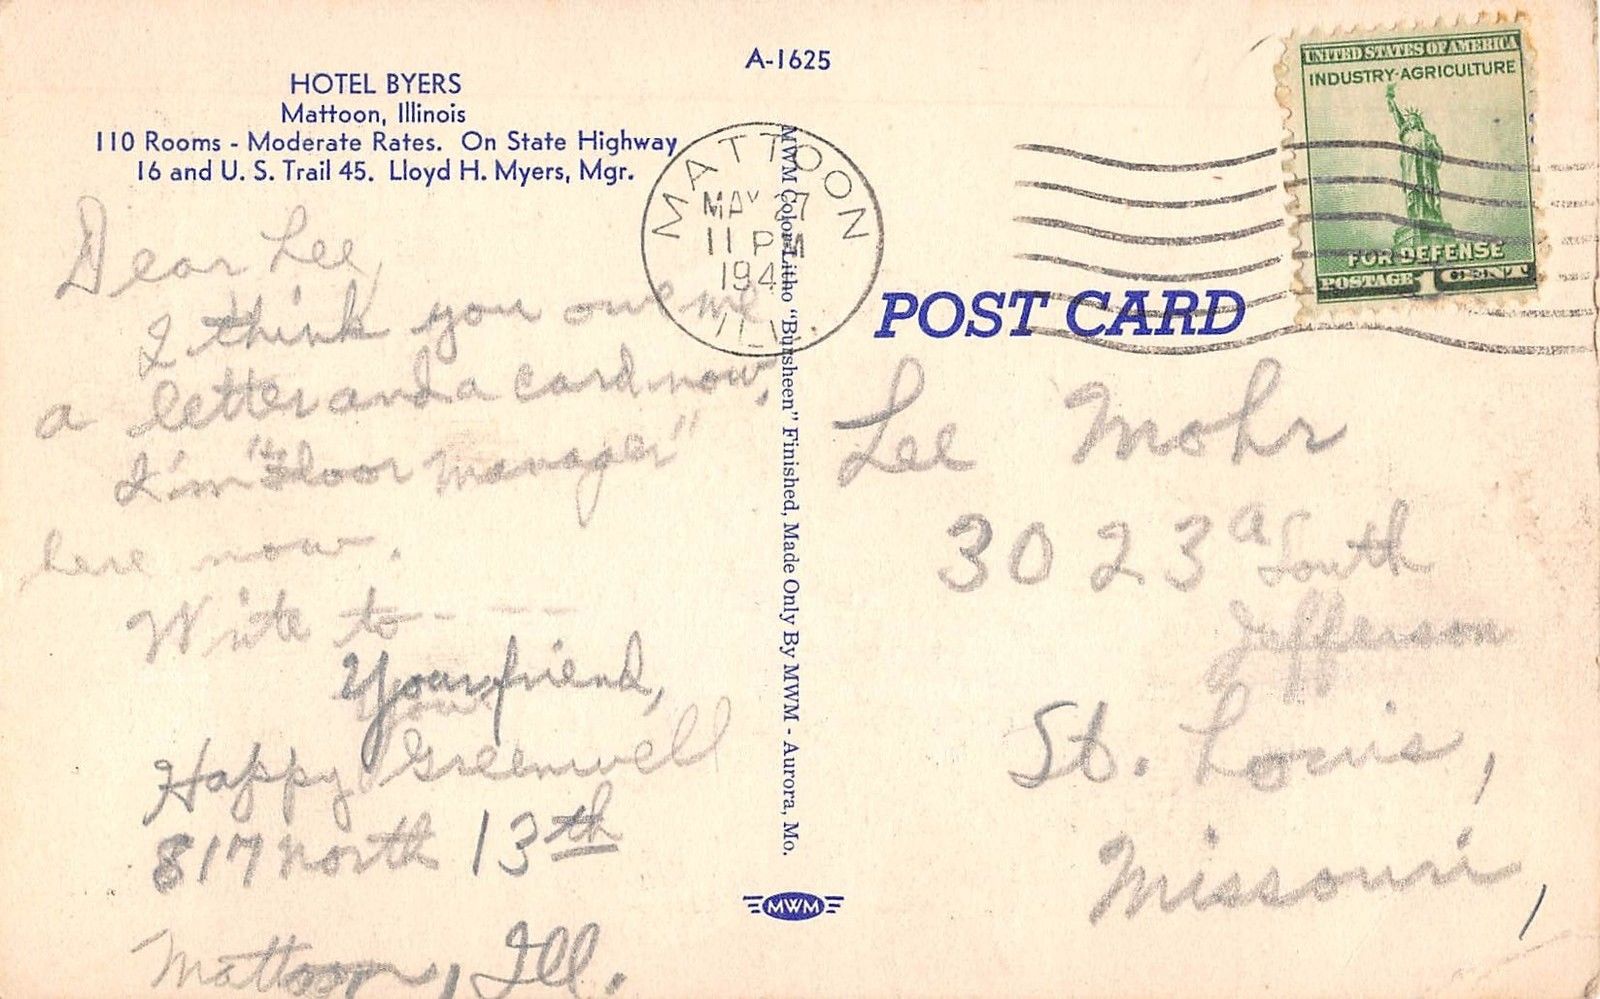 A-1625
HOTEL BYERS
Mattoon, Illinois
110 Rooms - Moderate Rates. On State Highway
16 and U. S. Trail 45. Lloyd H. Myers, Mgr.
Dear Lee,
I think you owe me
a letter and a card now.
I'm "Floor Manager"
here now.
Write to - - - -
Your friend,
Happy Greenwell
817 North 13th
Mattoon, Ill.
MATTOON
MAY 7
11 PM
194
ILL
MWM Color-Litho "Bursheen" Finished, Made Only By MWM - Aurora, Mo.
MWM
UNITED STATES OF AMERICA
INDUSTRY·AGRICULTURE
FOR DEFENSE
POSTAGE 1 CENT
POST CARD
Lee Mohr
3023a South
Jefferson
St. Louis,
Missouri,